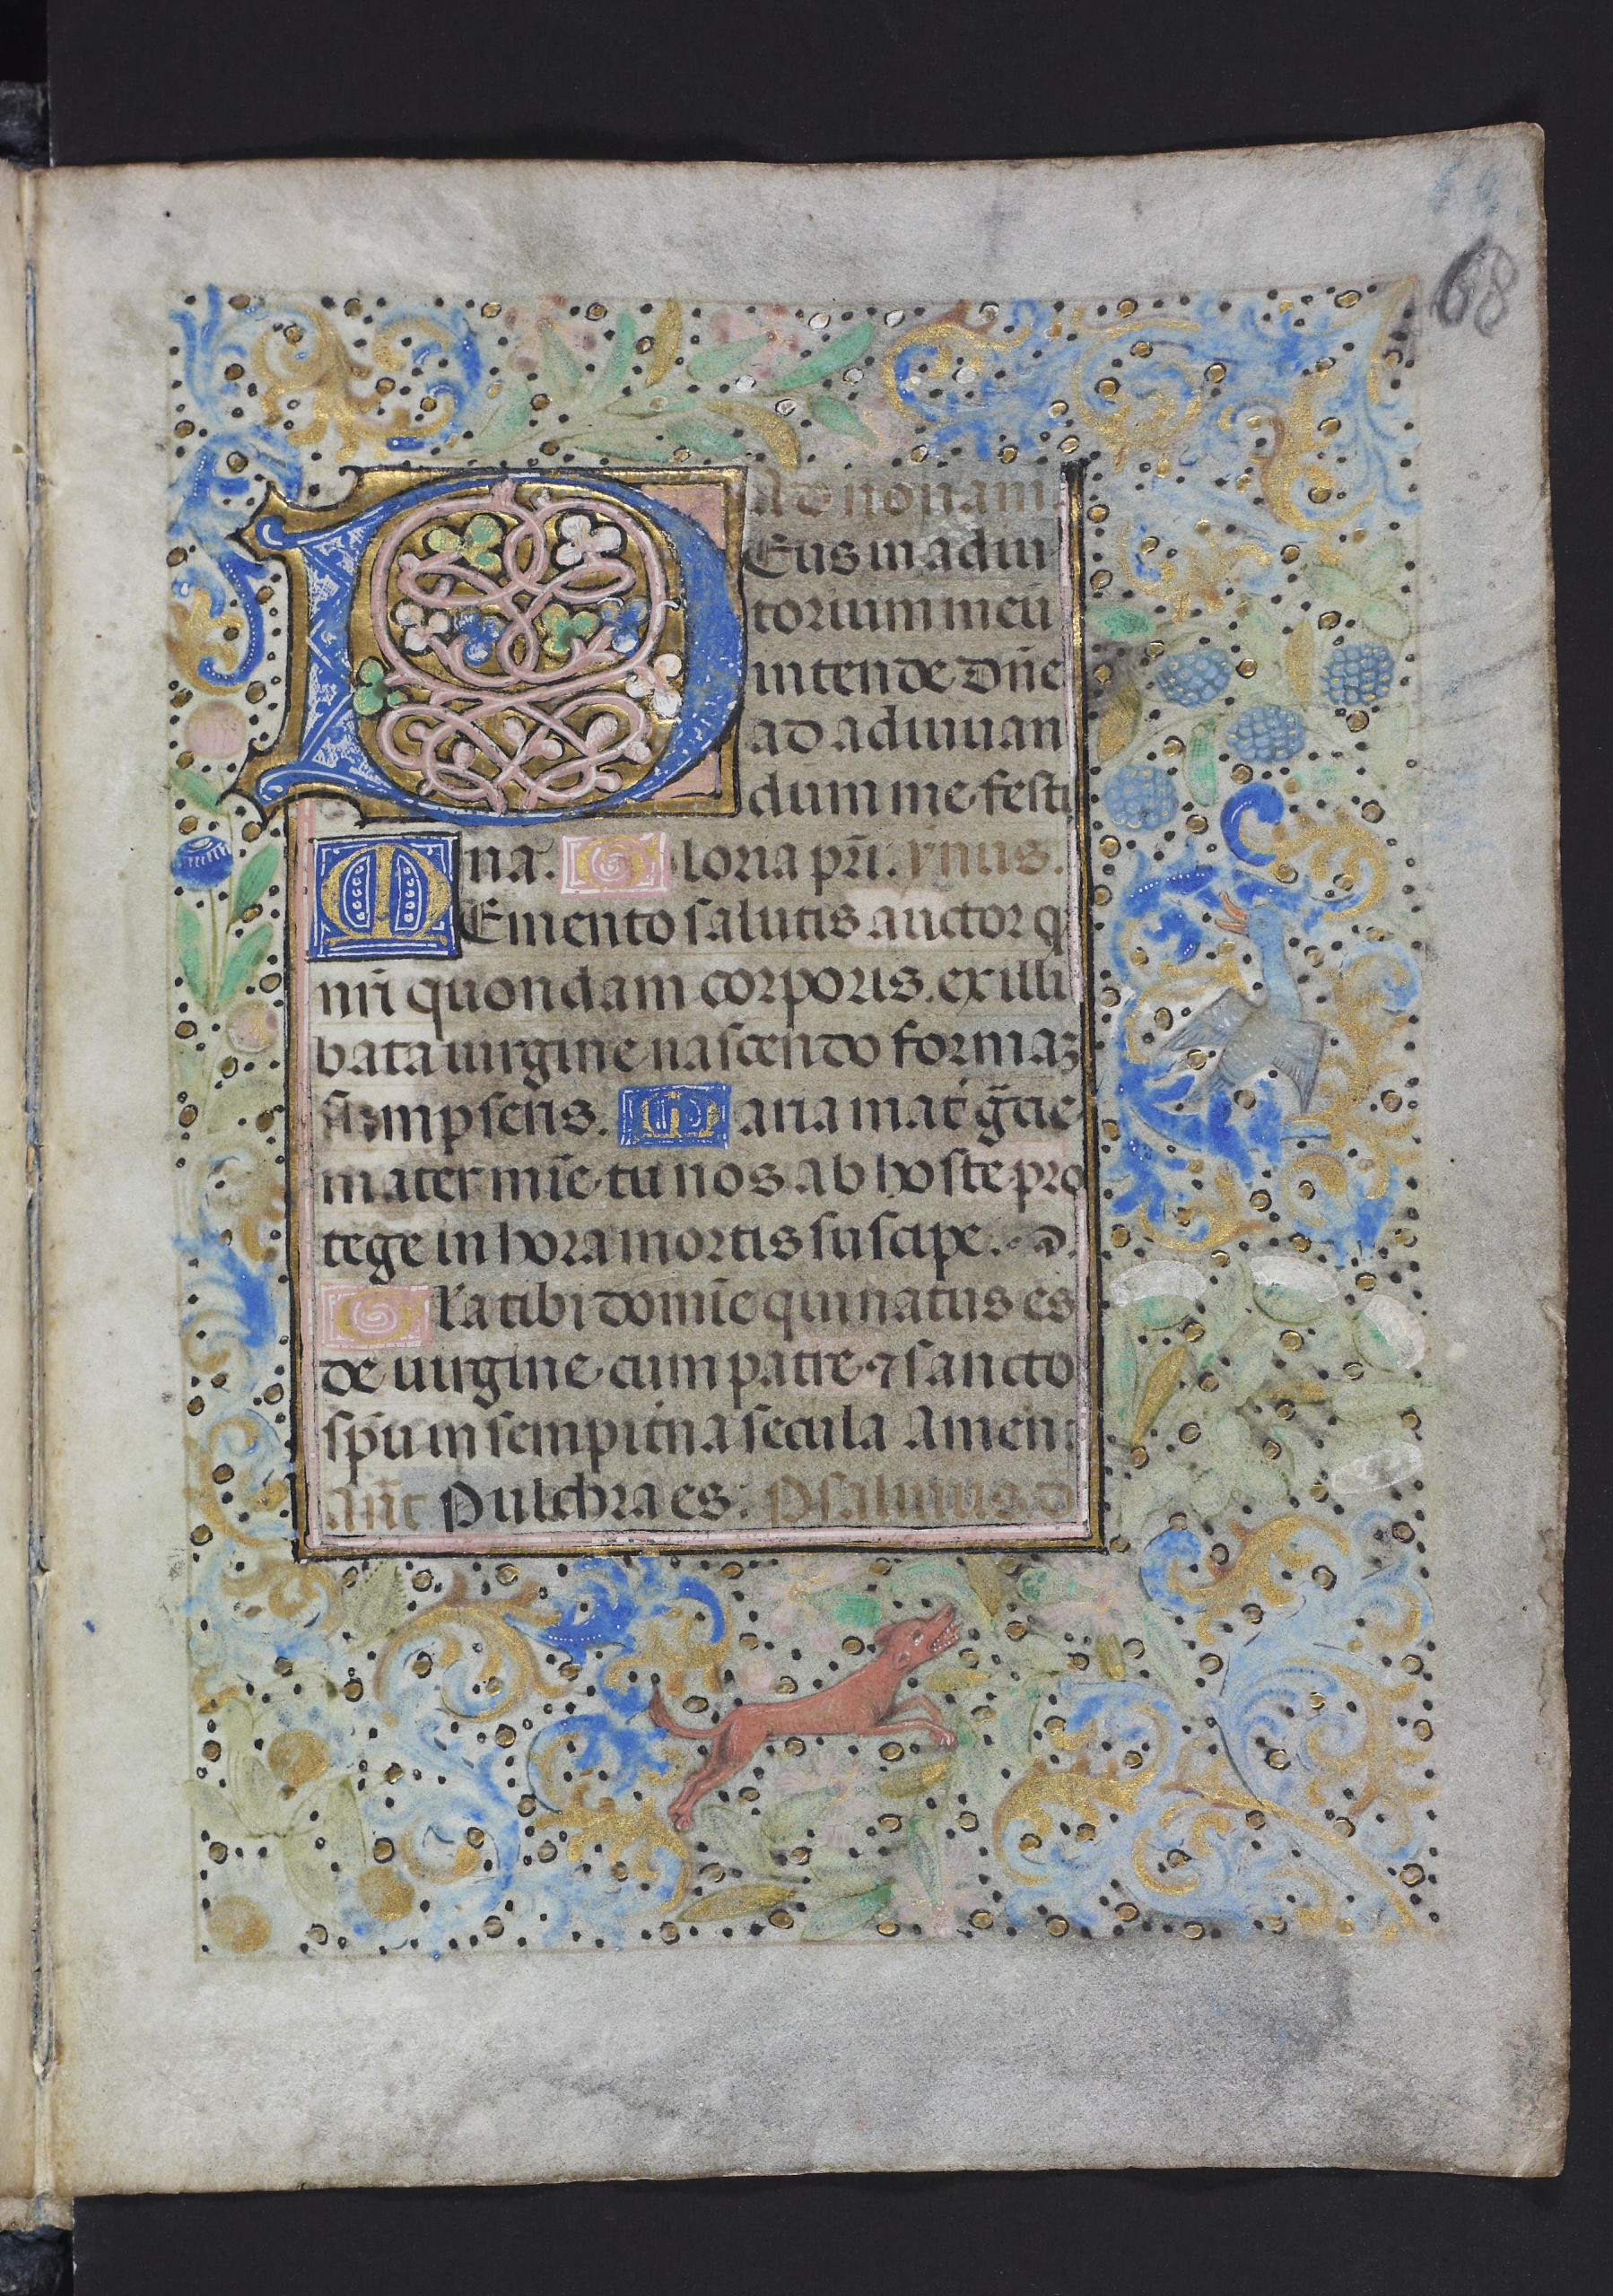 68
Ad nonam.
DEus in adiu
torium meū
intende dn̄e
ad adiuuan
dum me festi
na. Gloria pr̄i. ẏnus.
MEmento salutis auctor q
nr̄i quondam corporis. ex illi
bata uirgine nascendo formaʒ
sumpseris. Maria mat᷑ gr̄cie
mater mīe tu nos ab hoste pro
tege in hora mortis suscipe.
Gl'a tibi domīe qui natus es
de uirgine cum patre ⁊ sancto
sp̄u in sempit᷑na secula Amen:
ant̄ Pulchra es. Psalmus. d